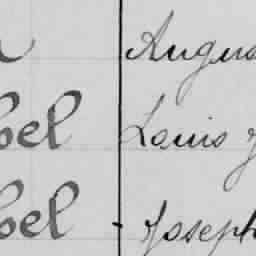 Augus
bel Louis J
bel Joseph